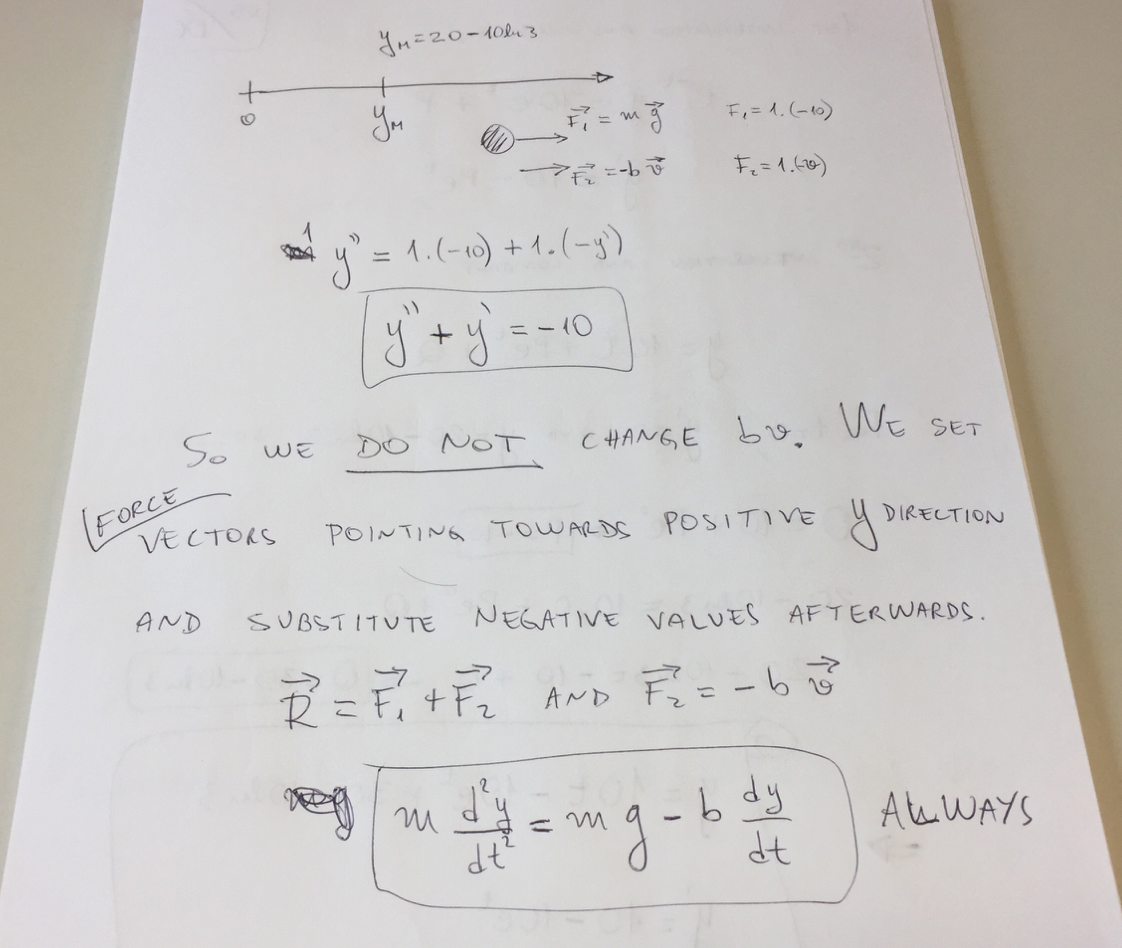 y_M = 20 - 10 ln 3
0 y_M
F⃗₁ = m g⃗ F₁ = 1.(-10)
F⃗₂ = -b v⃗ F₂ = 1.(-v)
1 y'' = 1.(-10) + 1.(-y')
y'' + y' = -10
SO WE DO NOT CHANGE bv. WE SET
FORCE
VECTORS POINTING TOWARDS POSITIVE y DIRECTION
AND SUBSTITUTE NEGATIVE VALUES AFTERWARDS.
R⃗ = F⃗₁ + F⃗₂ AND F⃗₂ = -b v⃗
m d²y/dt² = m g - b dy/dt ALWAYS